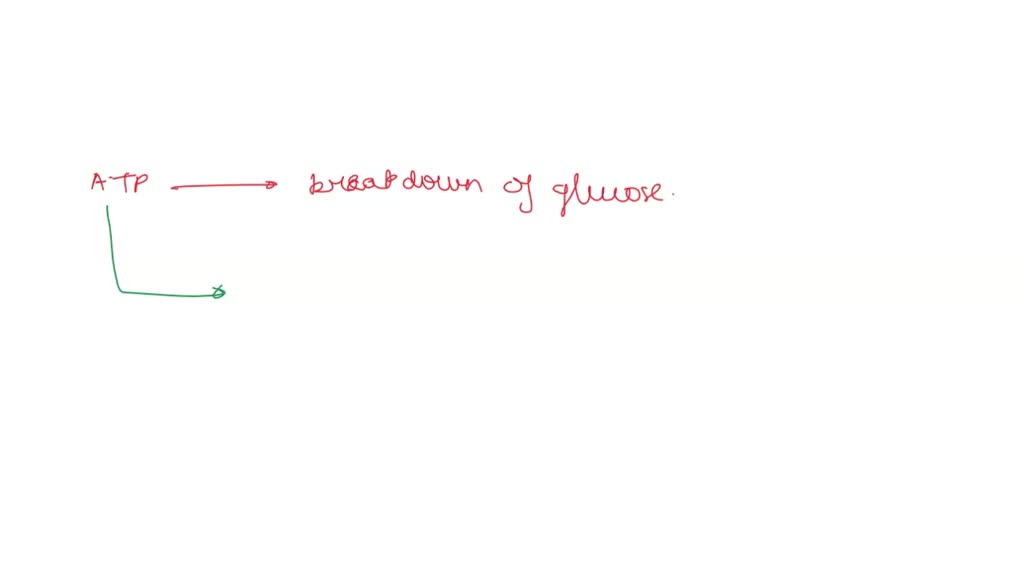 ATP → breakdown of glucose.